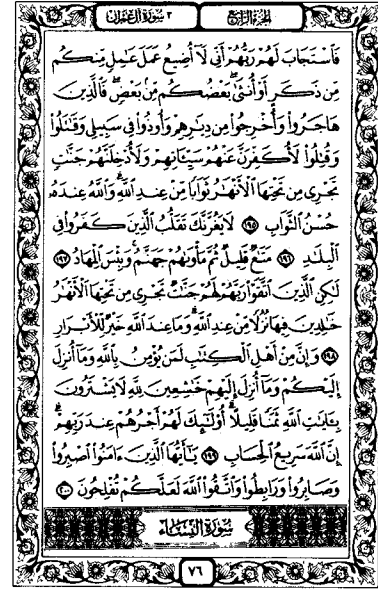 ٣ سورة آل عمران
الجزء الرابع
فَٱسْتَجَابَ لَهُمْ رَبُّهُمْ أَنِّي لَآ أُضِيعُ عَمَلَ عَٰمِلٍ مِّنكُم
مِّن ذَكَرٍ أَوْ أُنثَىٰ بَعْضُكُم مِّنۢ بَعْضٍ فَٱلَّذِينَ
هَاجَرُوا۟ وَأُخْرِجُوا۟ مِن دِيَٰرِهِمْ وَأُوذُوا۟ فِي سَبِيلِي وَقَٰتَلُوا۟
وَقُتِلُوا۟ لَأُكَفِّرَنَّ عَنْهُمْ سَيِّـَٔاتِهِمْ وَلَأُدْخِلَنَّهُمْ جَنَّٰتٍ
تَجْرِي مِن تَحْتِهَا ٱلْأَنْهَٰرُ ثَوَابًا مِّنْ عِندِ ٱللَّهِ وَٱللَّهُ عِندَهُۥ
حُسْنُ ٱلثَّوَابِ ١٩٥ لَا يَغُرَّنَّكَ تَقَلُّبُ ٱلَّذِينَ كَفَرُوا۟ فِي
ٱلْبِلَٰدِ ١٩٦ مَتَٰعٌ قَلِيلٌ ثُمَّ مَأْوَىٰهُمْ جَهَنَّمُ وَبِئْسَ ٱلْمِهَادُ ١٩٧
لَٰكِنِ ٱلَّذِينَ ٱتَّقَوْا۟ رَبَّهُمْ لَهُمْ جَنَّٰتٌ تَجْرِي مِن تَحْتِهَا ٱلْأَنْهَٰرُ
خَٰلِدِينَ فِيهَا نُزُلًا مِّنْ عِندِ ٱللَّهِ وَمَا عِندَ ٱللَّهِ خَيْرٌ لِّلْأَبْرَارِ
١٩٨ وَإِنَّ مِنْ أَهْلِ ٱلْكِتَٰبِ لَمَن يُؤْمِنُ بِٱللَّهِ وَمَآ أُنزِلَ
إِلَيْكُمْ وَمَآ أُنزِلَ إِلَيْهِمْ خَٰشِعِينَ لِلَّهِ لَا يَشْتَرُونَ
بِـَٔايَٰتِ ٱللَّهِ ثَمَنًا قَلِيلًا أُو۟لَٰٓئِكَ لَهُمْ أَجْرُهُمْ عِندَ رَبِّهِمْ
إِنَّ ٱللَّهَ سَرِيعُ ٱلْحِسَابِ ١٩٩ يَٰٓأَيُّهَا ٱلَّذِينَ ءَامَنُوا۟ ٱصْبِرُوا۟
وَصَابِرُوا۟ وَرَابِطُوا۟ وَٱتَّقُوا۟ ٱللَّهَ لَعَلَّكُمْ تُفْلِحُونَ ٢٠٠
سورة النساء
٧٦